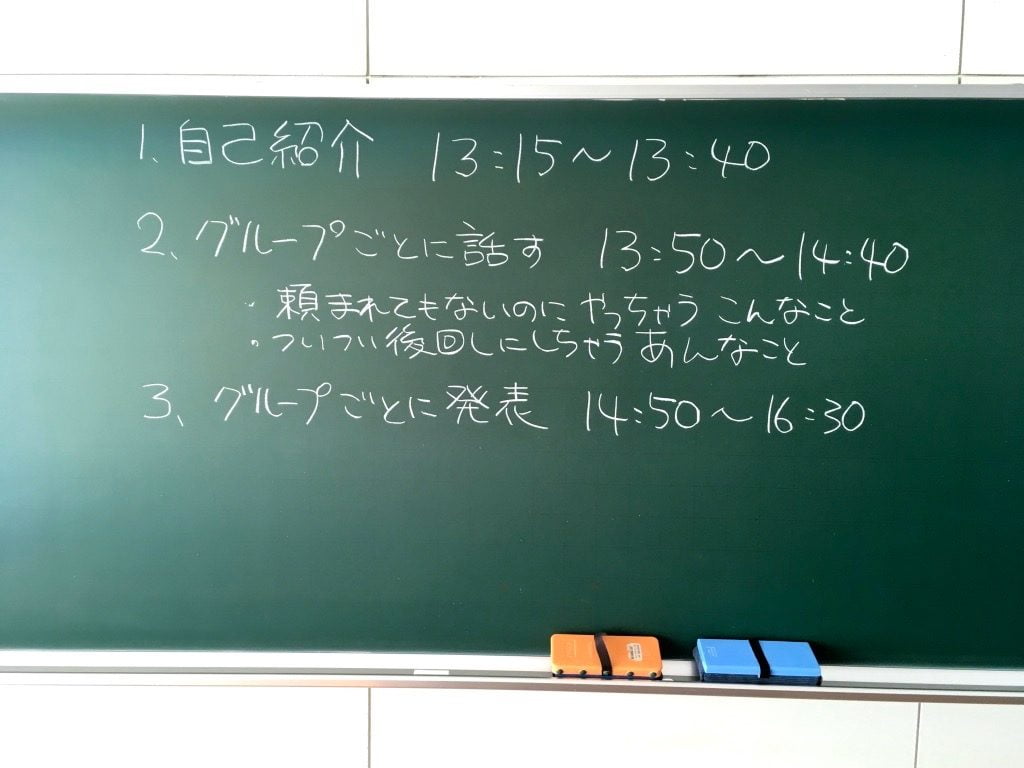 1、自己紹介 13:15～13:40
2、グループごとに話す 13:50～14:40
・頼まれてもないのに やっちゃう こんなこと
・ついつい後回しにしちゃう あんなこと
3、グループごとに発表 14:50～16:30